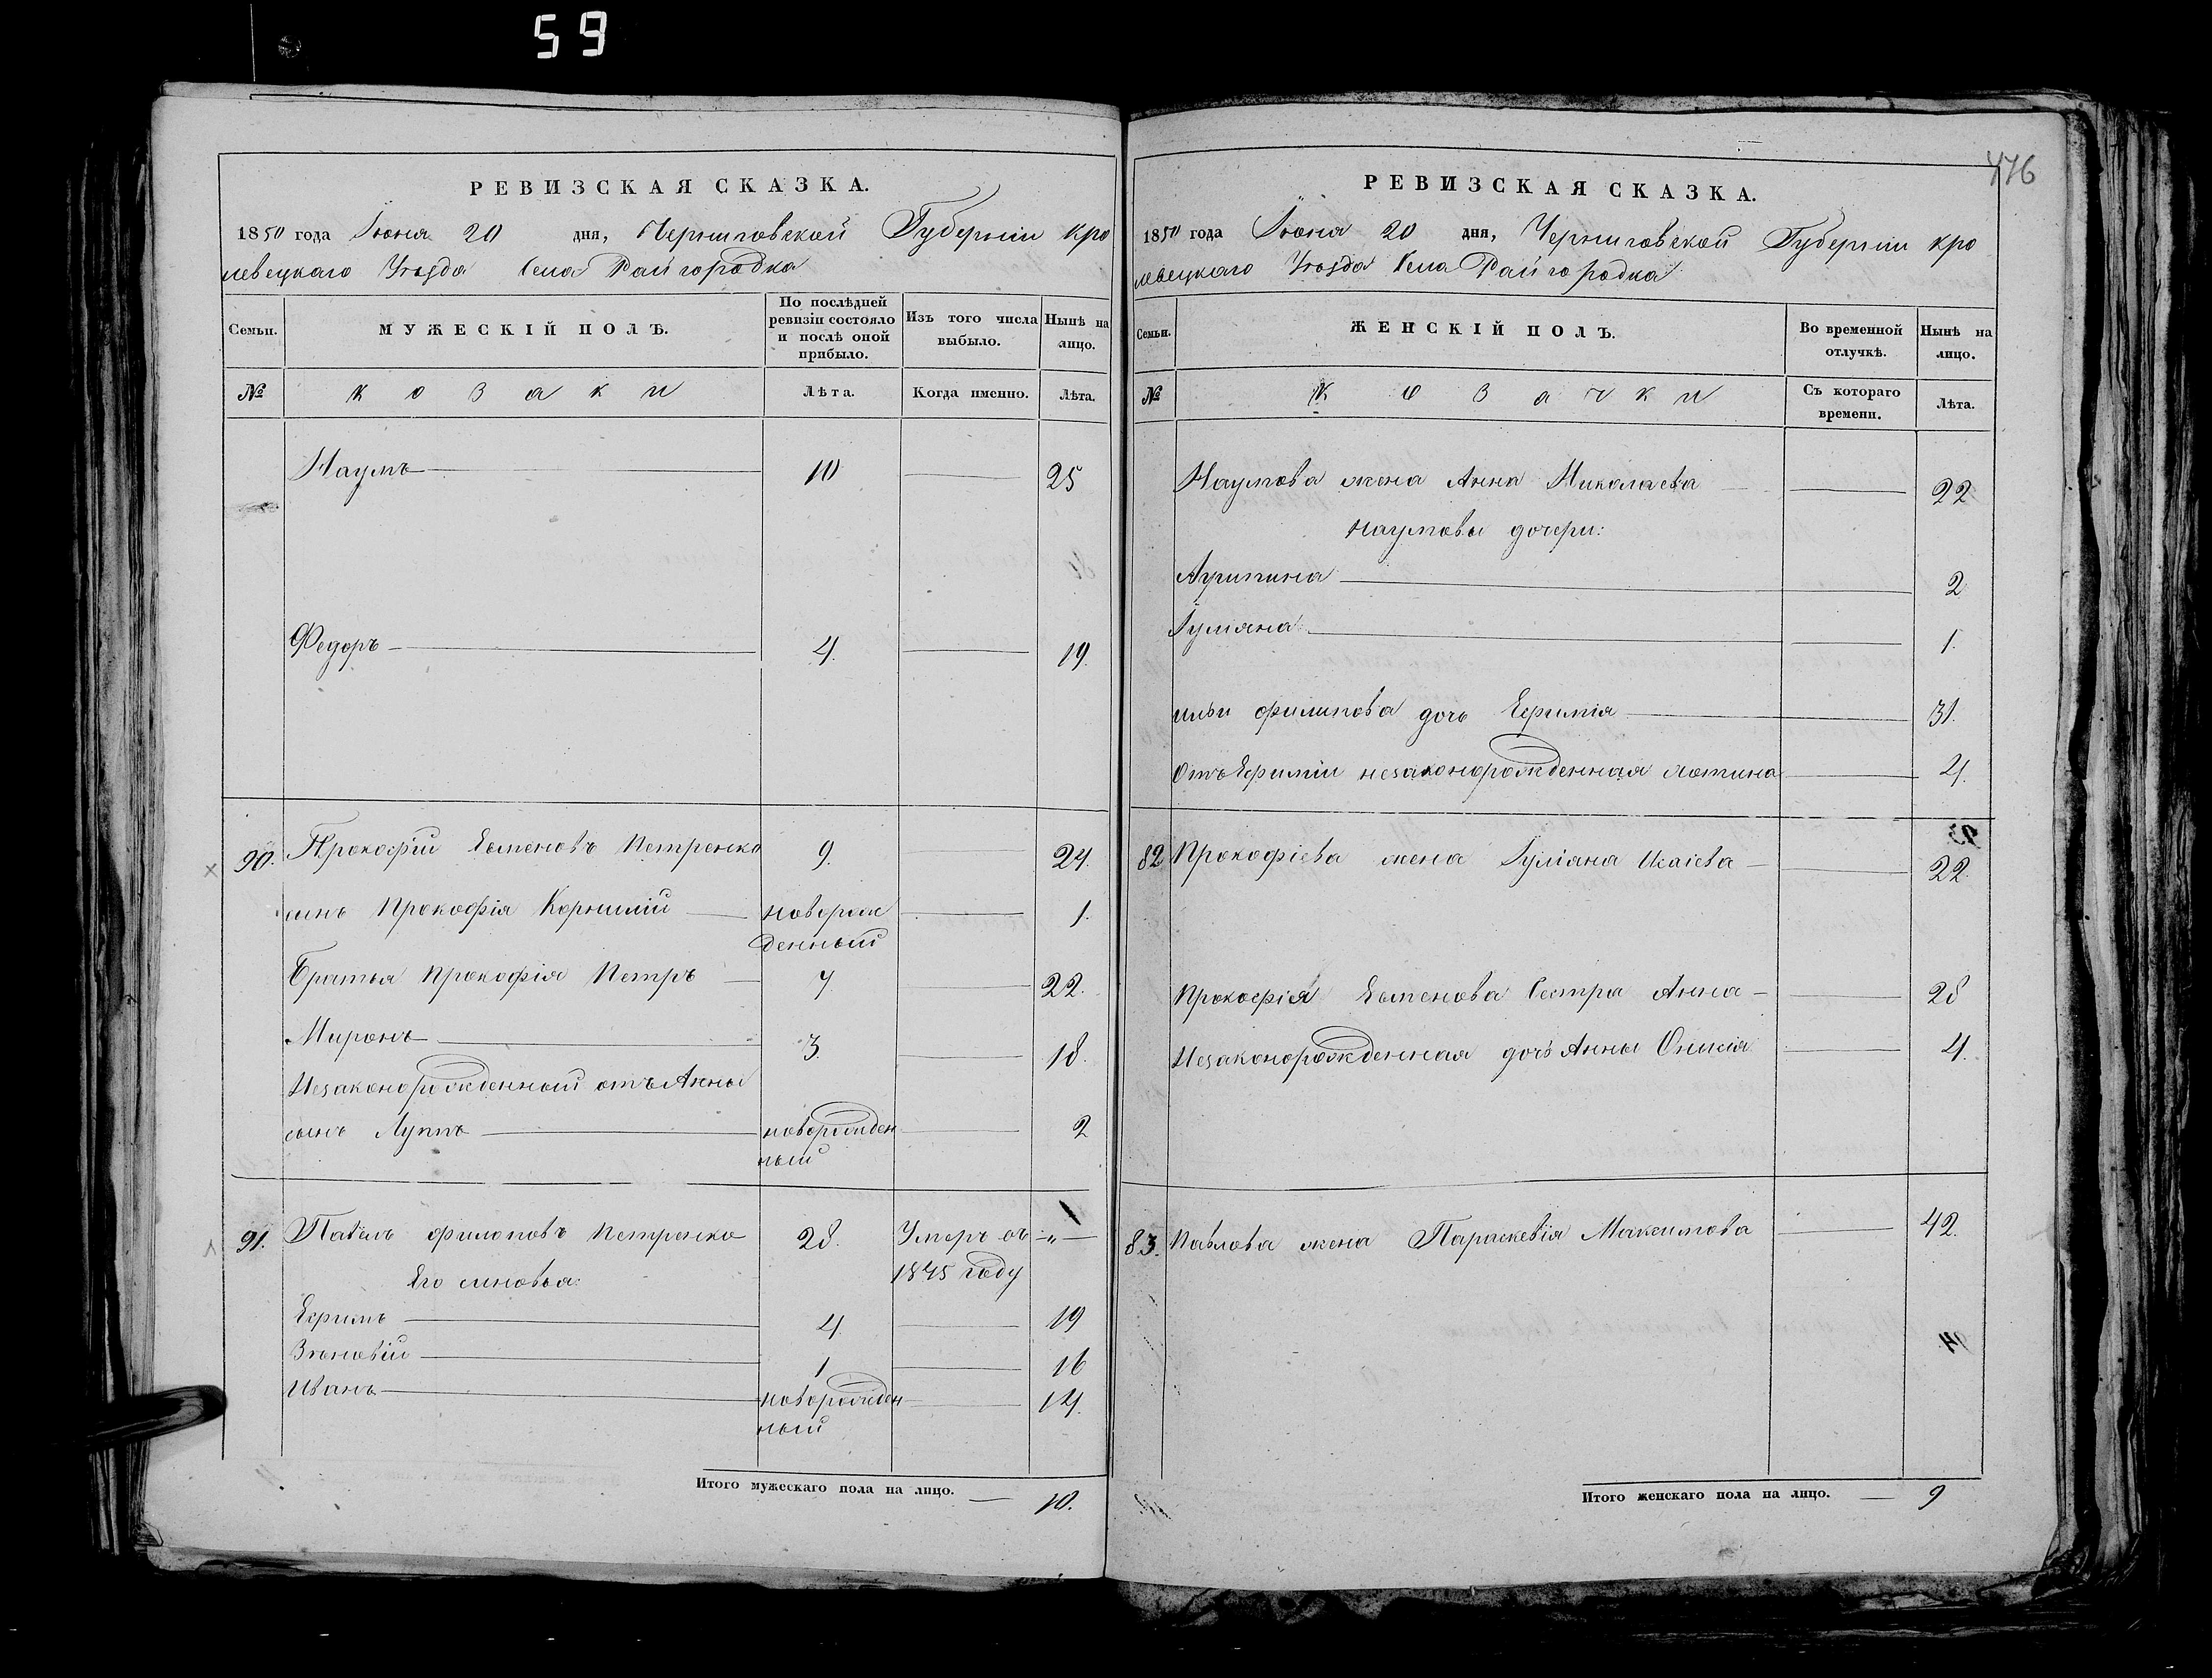 59
476
РЕВИЗСКАЯ СКАЗКА.
1850 года Іюня 20 дня, Черниговской Губерніи Кро
левецкаго Уѣзда Села Райгородка
Семьи. МУЖЕСКІЙ ПОЛЪ. По послѣдней ревизіи состояло и послѣ оной прибыло. Изъ того числа выбыло. Нынѣ на лицо.
№ козаки Лѣта. Когда именно. Лѣта.
Наумъ 10 25
Федоръ 4. 19.
90. Прокофій Евменовъ Петренко 9. 24.
сынъ Прокофія Корнилій новорож 1.
денный
Братья Прокофія Петръ 7 22.
Миронъ 3. 18.
Незаконорожденный отъ Анны
сынъ Луппъ новорожден 2
ный
91. Павелъ филиповъ Петренко 28. Умеръ въ „
Его сыновья: 1845 году
Ефимъ 4. 19
Зѣновій 1 16
Иванъ новорожден 14.
ный
Итого мужескаго пола на лицо. 10.
РЕВИЗСКАЯ СКАЗКА.
1850 года Іюня 20 дня, Черниговской Губерніи Кро
левецкаго Уѣзда Села Райгородка
Семьи. ЖЕНСКІЙ ПОЛЪ. Во временной отлучкѣ. Нынѣ на лицо.
№ Козачки Съ котораго времени. Лѣта.
Наумова жена Анна Николаева 22
Наумовы дочери:
Агрипина 2
Іуліяна 1.
Ильи филипова дочь Ефимія 31.
Отъ Ефиміи незаконорожденная 4.
82 Прокофіева жена Іуліана Исаіева 22.
Прокофія Евменова Сестра Анна 28
Незаконорожденная дочь Анны 4.
83. Павлова жена Параскевія Максимова 42.
Итого женскаго пола на лицо. 9